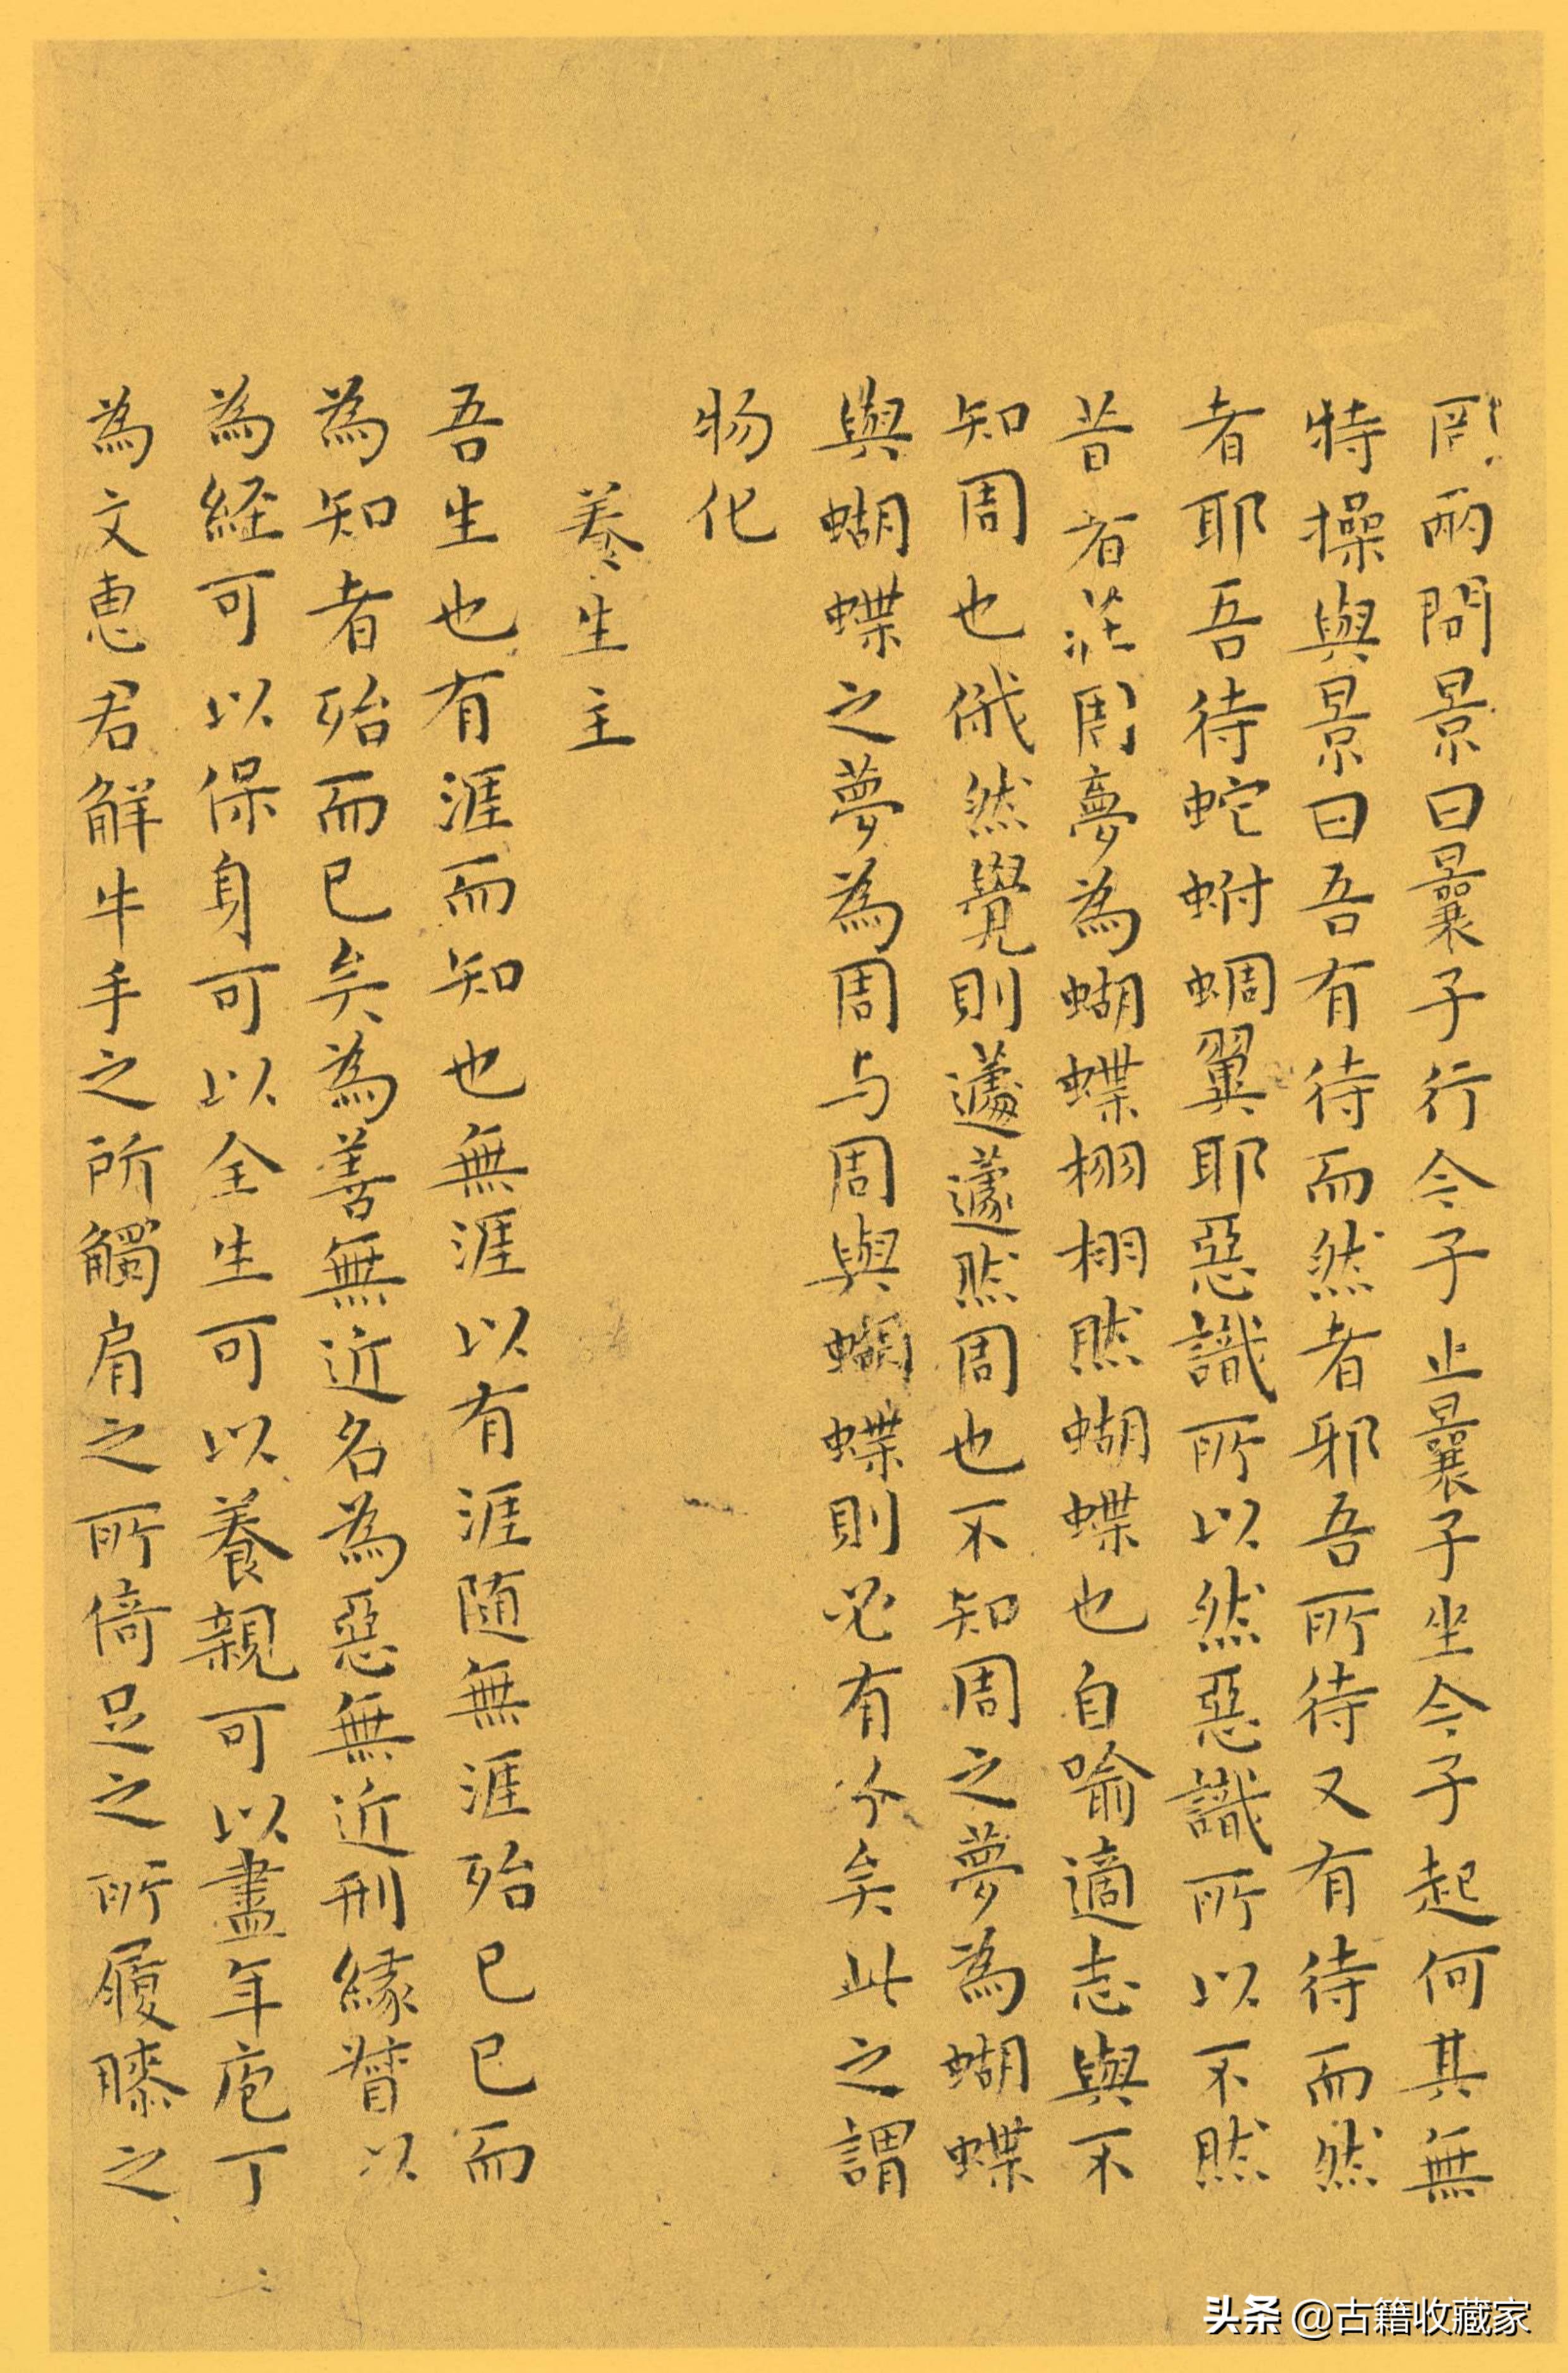 罔兩問景曰曩子行今子止曩子坐今子起何其無
特操與景曰吾有待而然者邪吾所待又有待而然
者耶吾待蛇蚹蜩翼耶惡識所以然惡識所以不然
昔者莊周夢為蝴蝶栩栩然蝴蝶也自喻適志與不
知周也俄然覺則蘧蘧然周也不知周之夢為蝴蝶
與蝴蝶之夢為周与周與蝴蝶則必有分矣此之謂
物化
養生主
吾生也有涯而知也無涯以有涯随無涯殆已已而
為知者殆而已矣為善無近名為惡無近刑緣督以
為経可以保身可以全生可以養親可以盡年庖丁
為文恵君解牛手之所觸肩之所倚足之所履膝之
头条 @古籍收藏家